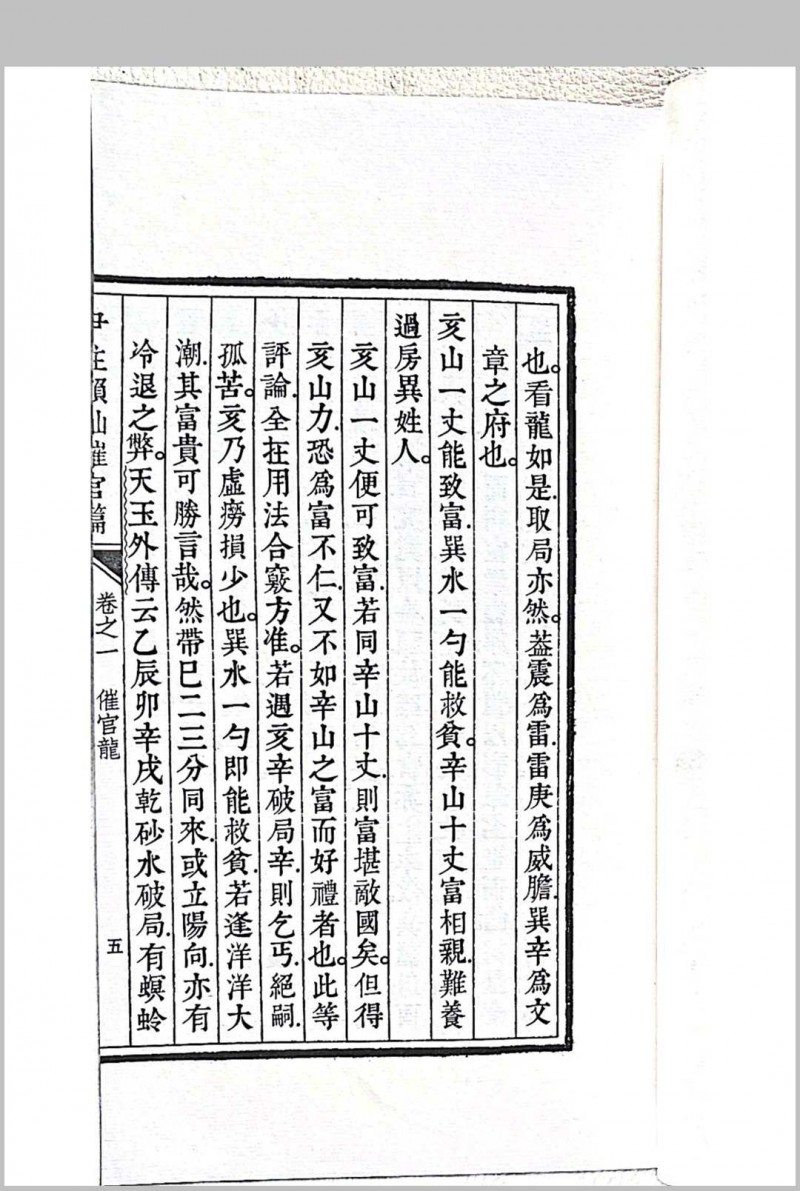 也。看龍如是.取局亦然。葢震爲雷.雷庚爲威膽.巽辛爲文
章之府也。
亥山一丈能致富.巽水一勺能救貧。辛山十丈富相親.難養
過房異姓人。
亥山一丈便可致富.若同辛山十丈.則富堪敵國矣。但得
亥山力.恐爲富不仁.又不如辛山之富而好禮者也。此等
評論.全在用法合竅方准。若遇亥辛破局.辛則乞丐.絕嗣.
孤苦。亥乃虛癆損少也。巽水一勺即能救貧.若逢洋洋大
潮.其富貴可勝言哉。然帶巳二三分同來.或立陽向.亦有
冷退之弊。天玉外傳云乙辰卯辛戌乾砂水破局.有螟蛉
尹註賴仙催官篇
卷之一 催官龍
五